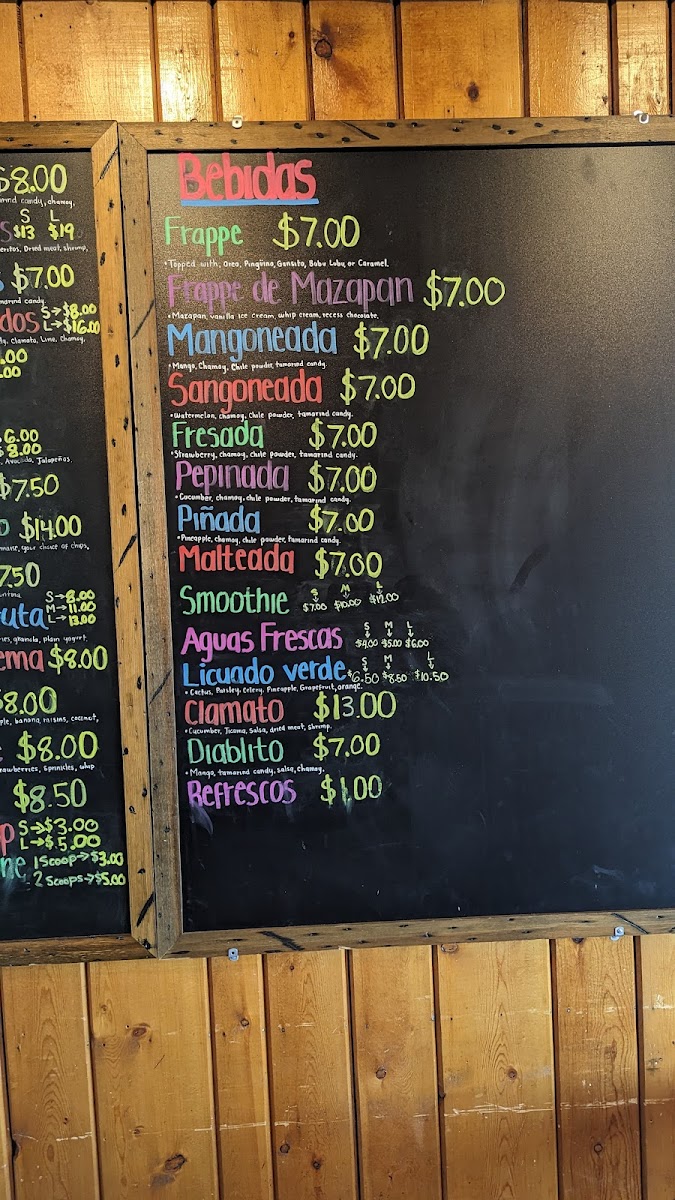 $8.00
candy, chamoy,
S L
$13 $19
Dried meat, shrimp,
$7.00
candy.
dos S→$8.00
L→$16.00
Clamato, Lime, Chamoy,
.00
.00
6.00
8.00
Avocado, Jalapeños.
$7.50
$14.00
your choice of chips,
7.50
uta S→8.00
M→11.00
L→13.00
granola, plain yogurt.
ema $8.00
$8.00
banana, raisins, coconut,
$8.00
sprinkles, whip
$8.50
p S→$3.00
L→$5.00
ne 1 Scoop→$3.00
2 Scoops→$5.00
Bebidas
Frappe $7.00
•Topped with; Oreo, Pingüino, Gansito, Bubu Lubu or Caramel.
Frappe de Mazapan $7.00
•Mazapan, vanilla ice cream, whip cream, recess chocolate.
Mangoneada $7.00
•Mango, Chamoy, Chile powder, tamarind candy.
Sangoneada $7.00
•Watermelon, chamoy, chile powder, tamarind candy.
Fresada $7.00
•Strawberry, chamoy, chile powder, tamarind candy.
Pepinada $7.00
•Cucumber, chamoy, chile powder, tamarind candy.
Piñada $7.00
•Pineapple, chamoy, chile powder, tamarind candy.
Malteada $7.00
S M L
Smoothie $7.00 $10.00 $12.00
S M L
Aguas Frescas $4.00 $5.00 $6.00
S M L
Licuado verde $6.50 $8.50 $10.50
•Cactus, Parsley, Celery, Pineapple, Grapefruit, orange.
Clamato $13.00
•Cucumber, Jicama, Salsa, dried meat, shrimp.
Diablito $7.00
•Mango, tamarind candy, salsa, chamoy.
Refrescos $1.00